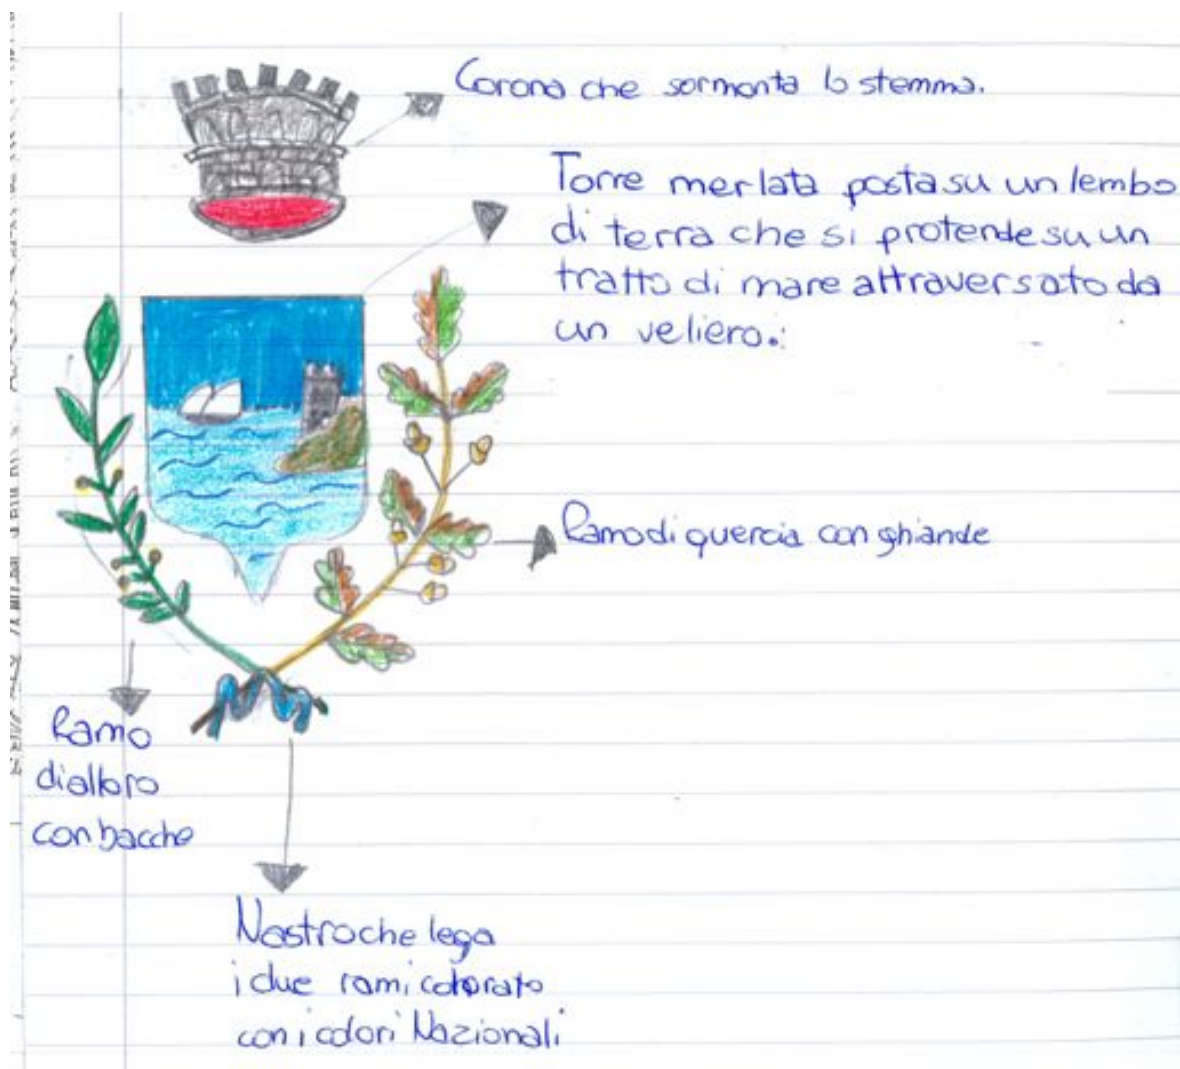 Corona che sormonta lo stemma.
Torre merlata posta su un lembo
di terra che si protende su un
tratto di mare attraversato da
un veliero.:
Ramo di quercia con ghiande
Ramo
di alloro
con bacche
Nastro che lega
i due rami colorato
con i colori Nazionali